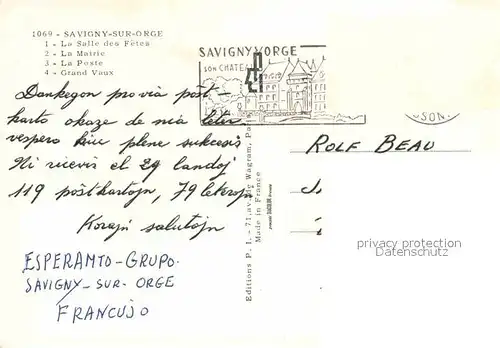 1069 - SAVIGNY-SUR-ORGE
1 - La Salle des Fêtes
2 - La Mairie
3 - La Poste
4 - Grand Vaux
SAVIGNY S/ ORGE
SON CHATEAU
Dankegon pro via poŝt-
karto okaze de nia leter-
vespero kiu plene sukcesis
Ni ricevis el 29 landoj
119 poŝtkartojn, 79 leterojn
Korajn salutojn
ESPERANTO-GRUPO.
SAVIGNY-SUR-ORGE
FRANCUJO
Editions P. I. - 71, av. de Wagram, Pa
Made in France
SON
ROLF BEAU
privacy protection
Datenschutz